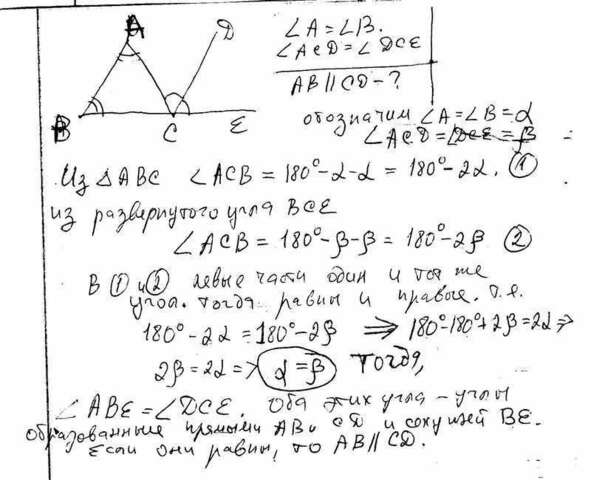 A
D
B
C
E
∠A = ∠B.
∠ACD = ∠DCE
AB ∥ CD - ?
обозначим ∠A = ∠B = α
∠ACD = ∠DCE = β
Из △ABC ∠ACB = 180° - α - α = 180° - 2α. ①
из развернутого угла BCE
∠ACB = 180° - β - β = 180° - 2β ②
В ① и ② левые части один и тот же
угол. тогда равны и правые. т.е.
180° - 2α = 180° - 2β ⇒ 180° - 180° + 2β = 2α ⇒
2β = 2α ⇒ α = β Тогда,
∠ABE = ∠DCE. Оба этих угла - углы
образованные прямыми AB и CD и секущей BE.
Если они равны, то AB ∥ CD.